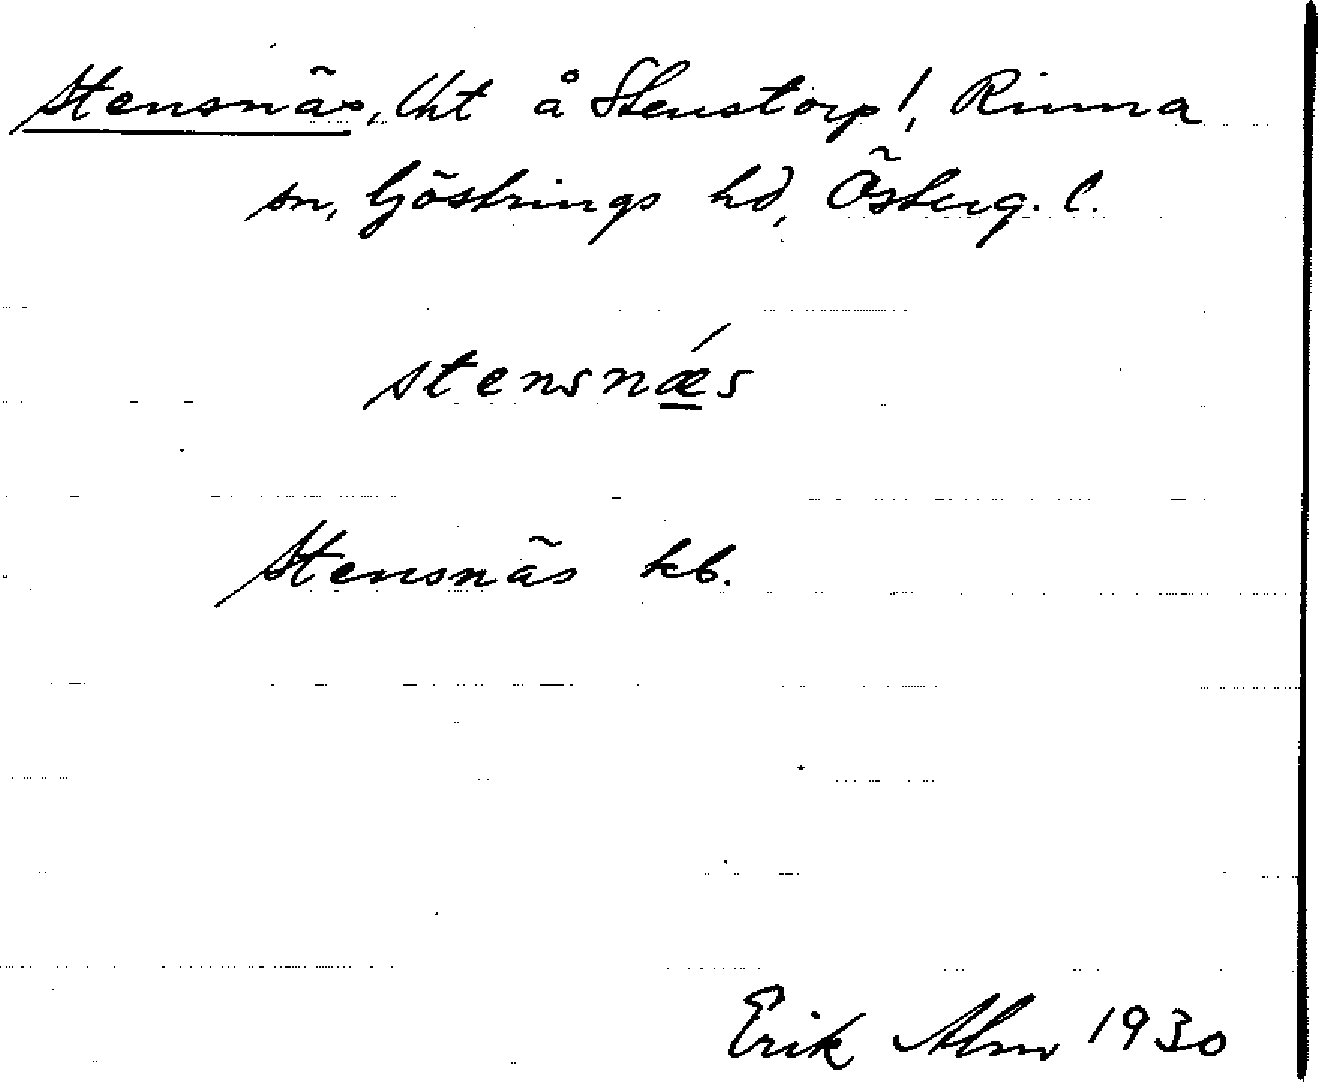 Stensnäs, lht å Stenstorp!, Rinna
sn, Göstrings hd, Österg. l.
stensnǽs
Stensnäs kb.
Erik Alm 1930